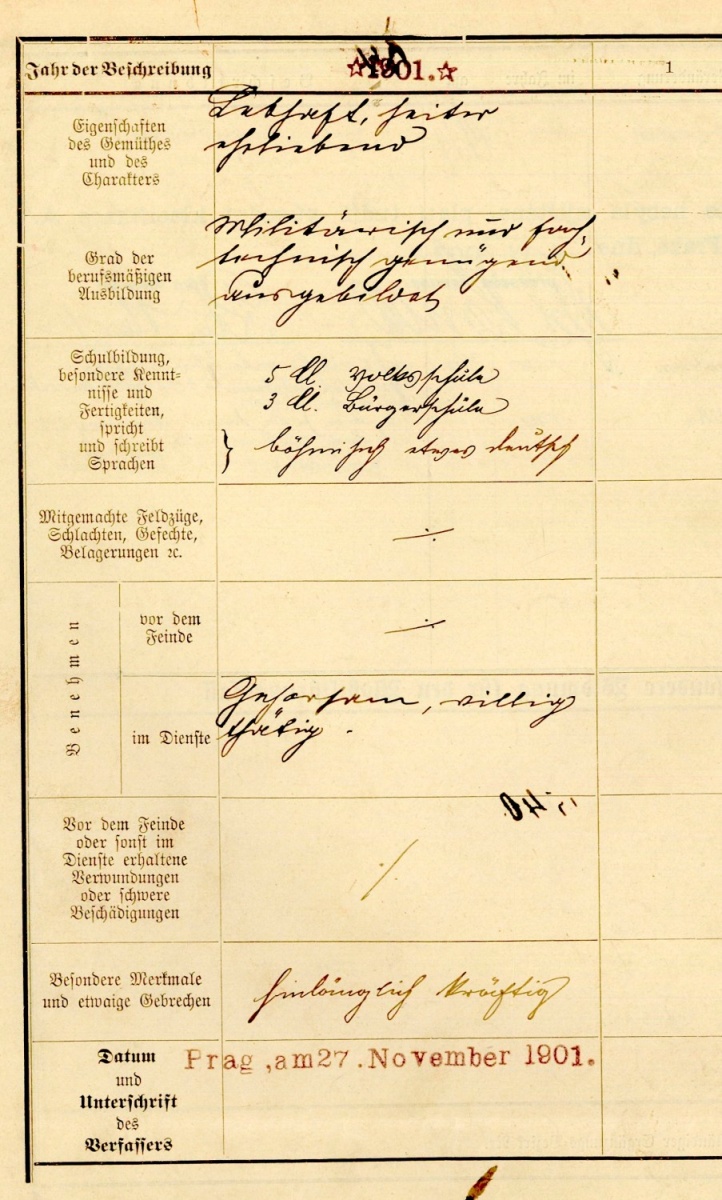 Jahr der Beschreibung
☆1901.☆
1
Eigenschaften
des Gemüthes
und des
Charakters
Lebhaft, heiter
ehrliebend
Grad der
berufsmäßigen
Ausbildung
Militärisch und fach-
technisch genügend
ausgebildet
Schulbildung,
besondere Kennt-
nisse und
Fertigkeiten,
spricht
und schreibt
Sprachen
5 Cl. Volksschule
3 Cl. Bürgerschule
} böhmisch etwas deutsch
Mitgemachte Feldzüge,
Schlachten, Gefechte,
Belagerungen ꝛc.
Benehmen
vor dem
Feinde
im Dienste
Gehorsam, willig
thätig.
Vor dem Feinde
oder sonst im
Dienste erhaltene
Verwundungen
oder schwere
Beschädigungen
Besondere Merkmale
und etwaige Gebrechen
hinlänglich kräftig
Datum
und
Unterschrift
des
Verfassers
Prag, am 27. November 1901.